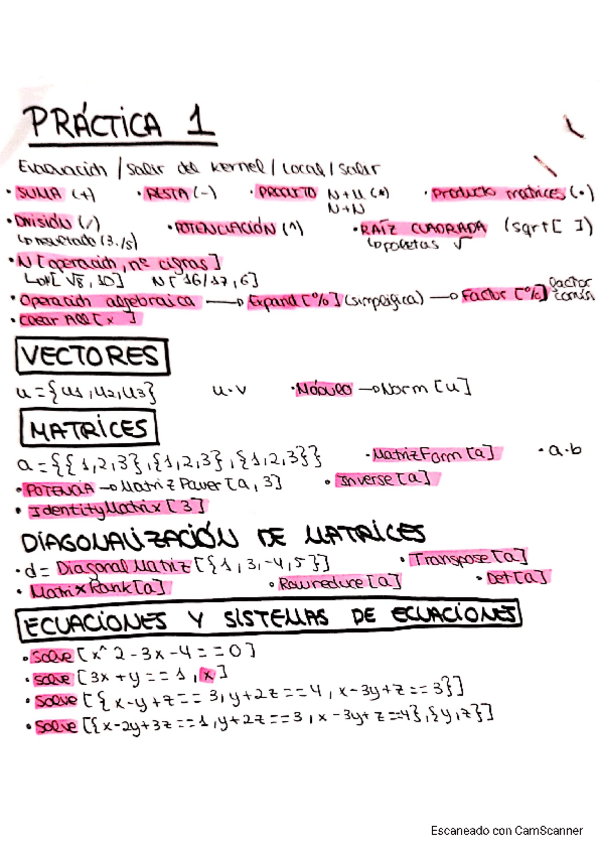 PRÁCTICA 1
Evaluación / Salir del Kernel / Local / Salir
• SUMA (+) • RESTA (-) • PRODUCTO N*U (*) • Producto matrices (•)
N*N
• DIVISIÓN (/) • POTENCIACIÓN (^) • RAÍZ CUADRADA (sqrt[ ])
↳ resultado (3./5) ↳ paletas √
• N[operación, nº cifras]
↳ N[√8, 10] N[16/17, 6]
• Operación algebraica → Expand[%] (simplifica) → Factor[%] factor común
• Clear All[x ]
VECTORES
u = {u1, u2, u3} u·v • Módulo → Norm[u]
MATRICES
a = {{1,2,3},{1,2,3},{1,2,3}} • MatrizForm[a] • a·b
• POTENCIA → MatrizPower[a, 3] • Inverse[a]
• IdentityMatrix[3]
DIAGONALIZACIÓN DE MATRICES
• d = Diagonal Matriz[{1, 3, -4, 5}] • Transpose[a]
• MatrixRank[a] • Rowreduce[a] • Det[a]
ECUACIONES Y SISTEMAS DE ECUACIONES
• Solve[x^2-3x-4==0]
• Solve[3x+y==1, x]
• Solve[{x-y+z==3, y+2z==4, x-3y+z==3}]
• Solve[{x-2y+3z==1, y+2z==3, x-3y+z==4},{y,z}]
Escaneado con CamScanner